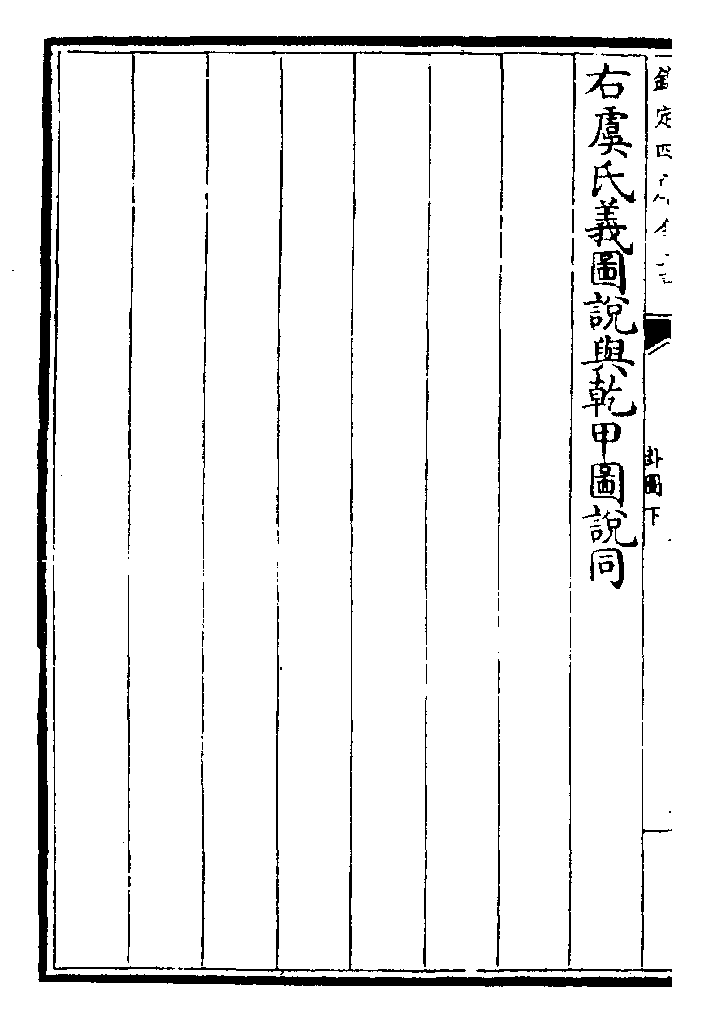 欽定四庫全書
卦圖下
右虞氏義圖說與乾甲圖說同